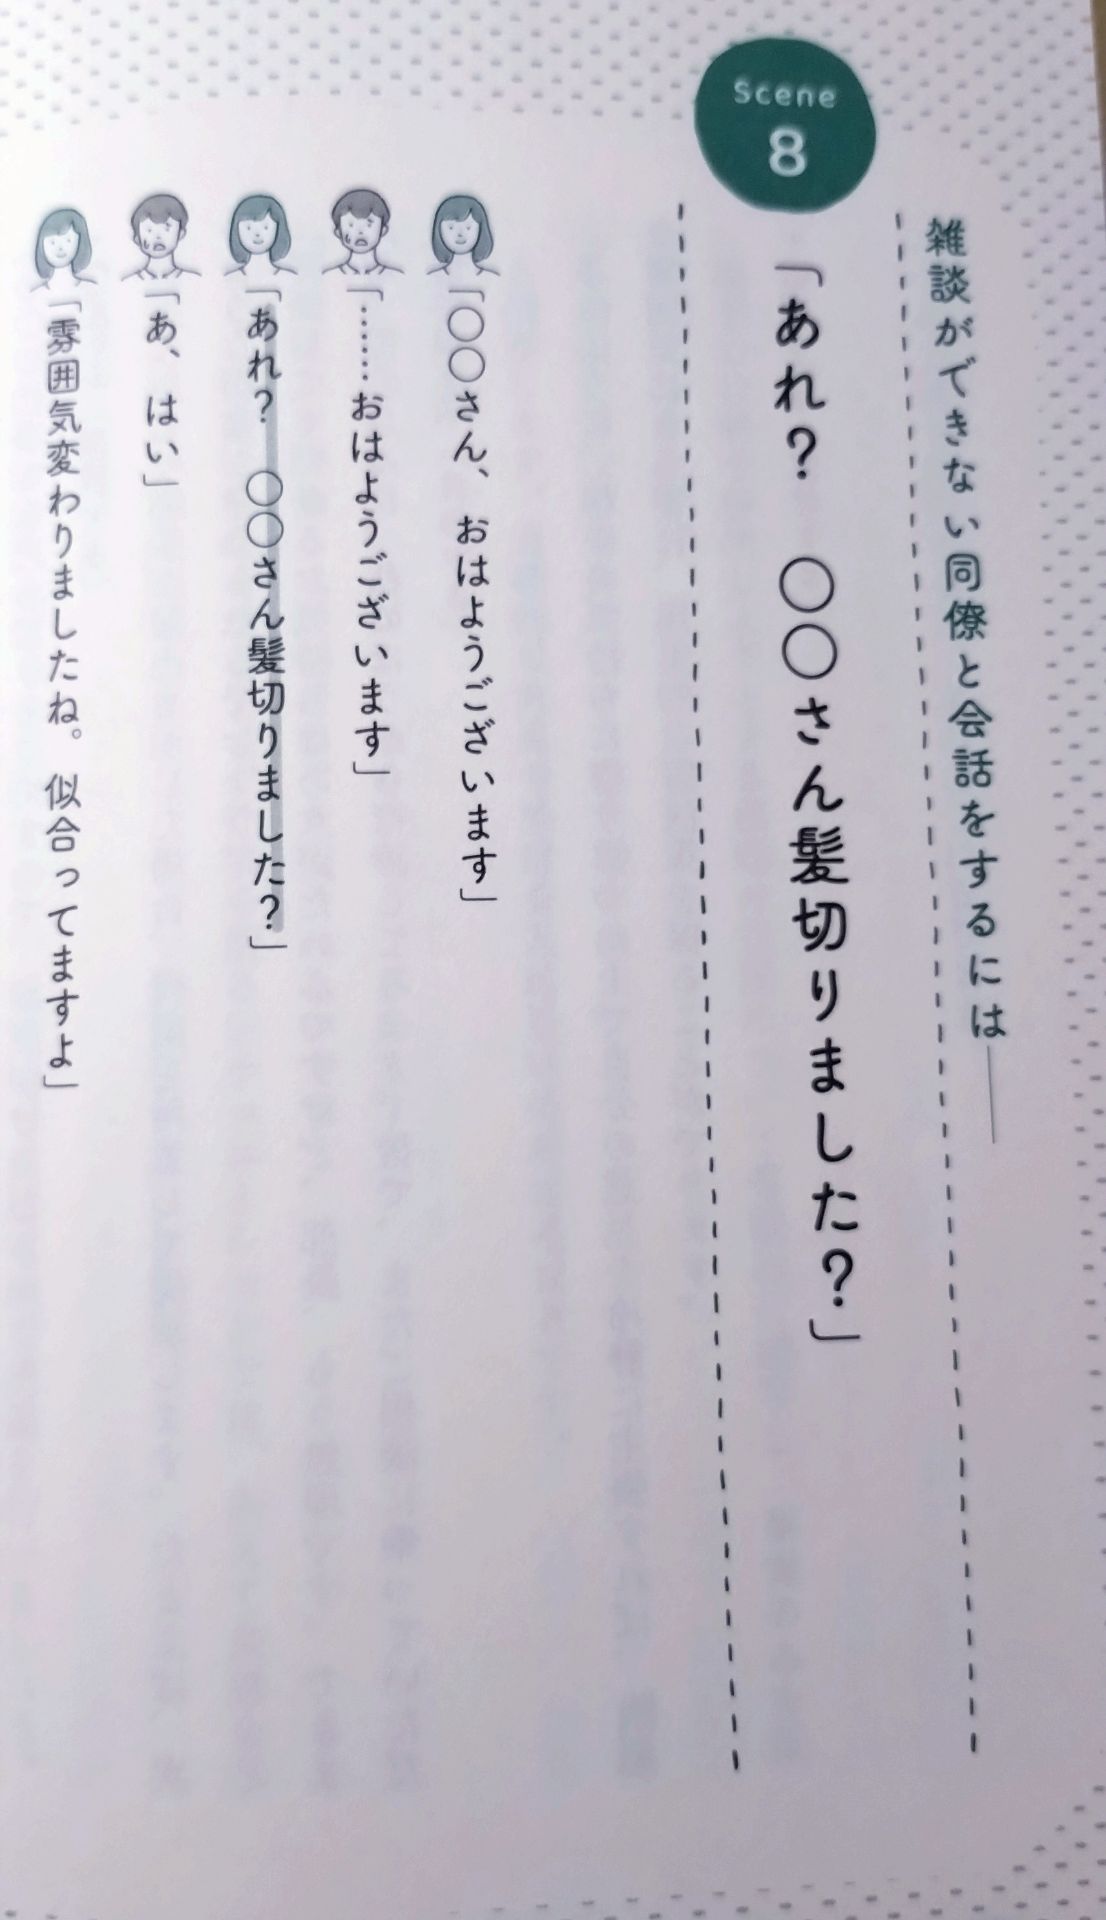 Scene
8
雑談ができない同僚と会話をするには──
「あれ？　○○さん髪切りました？」
「○○さん、おはようございます」
「……おはようございます」
「あれ？　○○さん髪切りました？」
「あ、はい」
「雰囲気変わりましたね。似合ってますよ」